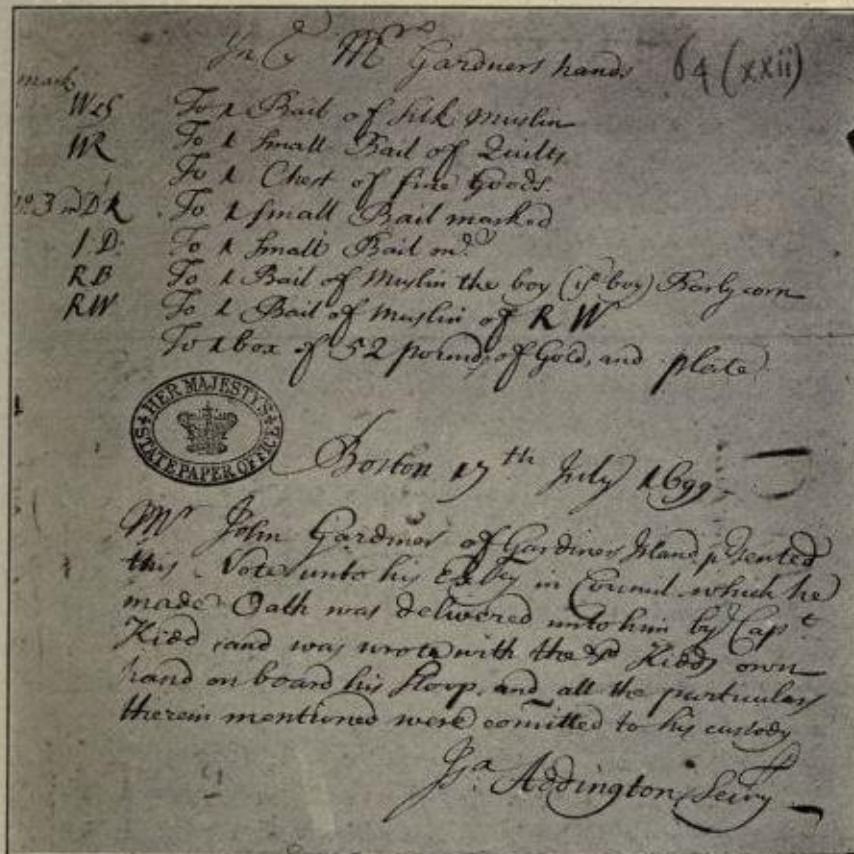 In Mrs Gardners hands 64 (xxii)
mark
W&S To 1 Bail of Silk Muslin
WR To 1 Small Bail of Quilts
To 1 Chest of fine Goods.
No. 3 mDR To 1 Small Bail marked
J D: To 1 Small Bail md
RB To 1 Bail of Muslin the boy (is boy) Barlycorn
RW To 1 Bail of Muslin of R W
To 1 box of 52 pounds of Gold, and plate
HER MAJESTY'S STATE PAPER OFFICE
Boston 17th July 1699.
Mr John Gardiner of Gardiners Island psented
this Note unto his Excy in Council which he
made Oath was delivered unto him by Capt
Kidd, and was wrote with the sd Kidds own
hand on board his Sloop, and all the particulars
therein mentioned were comitted to his custody
Jsa. Addington Secry